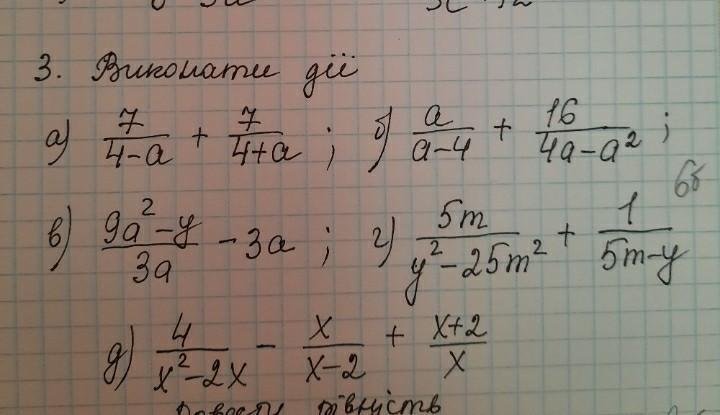 3. Виконати дії
а) 7/(4-a) + 7/(4+a) ; б) a/(a-4) + 16/(4a-a²) ;
6б
в) (9a²-y)/(3a) - 3a ; г) 5m/(y²-25m²) + 1/(5m-y)
д) 4/(x²-2x) - x/(x-2) + (x+2)/x
рівність